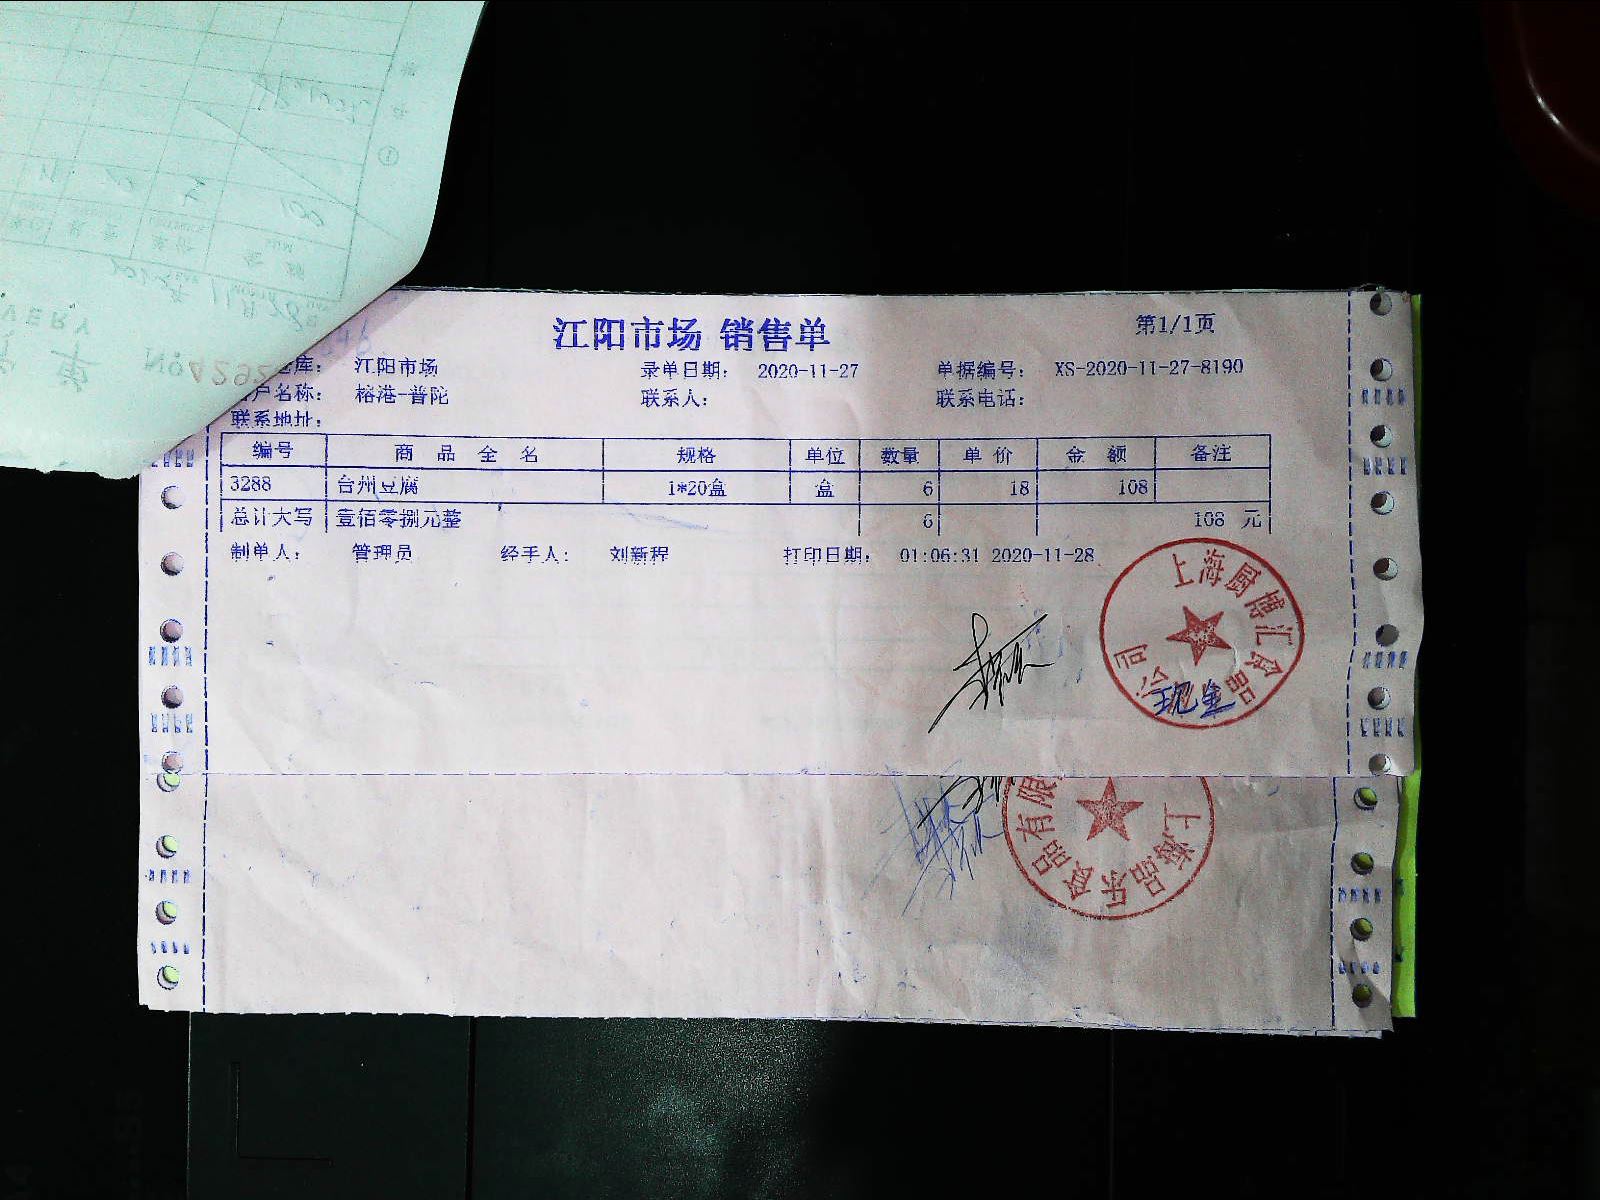 江阳市场 销售单
第1/1页
库： 江阳市场 录单日期： 2020-11-27 单据编号： XS-2020-11-27-8190
户名称： 榕港-普陀 联系人： 联系电话：
联系地址：
编号 商品全名 规格 单位 数量 单价 金额 备注
3288 台州豆腐 1*20盒 盒 6 18 108
总计大写 壹佰零捌元整 6 108 元
制单人： 管理员 经手人： 刘新程 打印日期： 01:06:31 2020-11-28
上海厨博汇食品 公司
现金
上海品乐食品有限